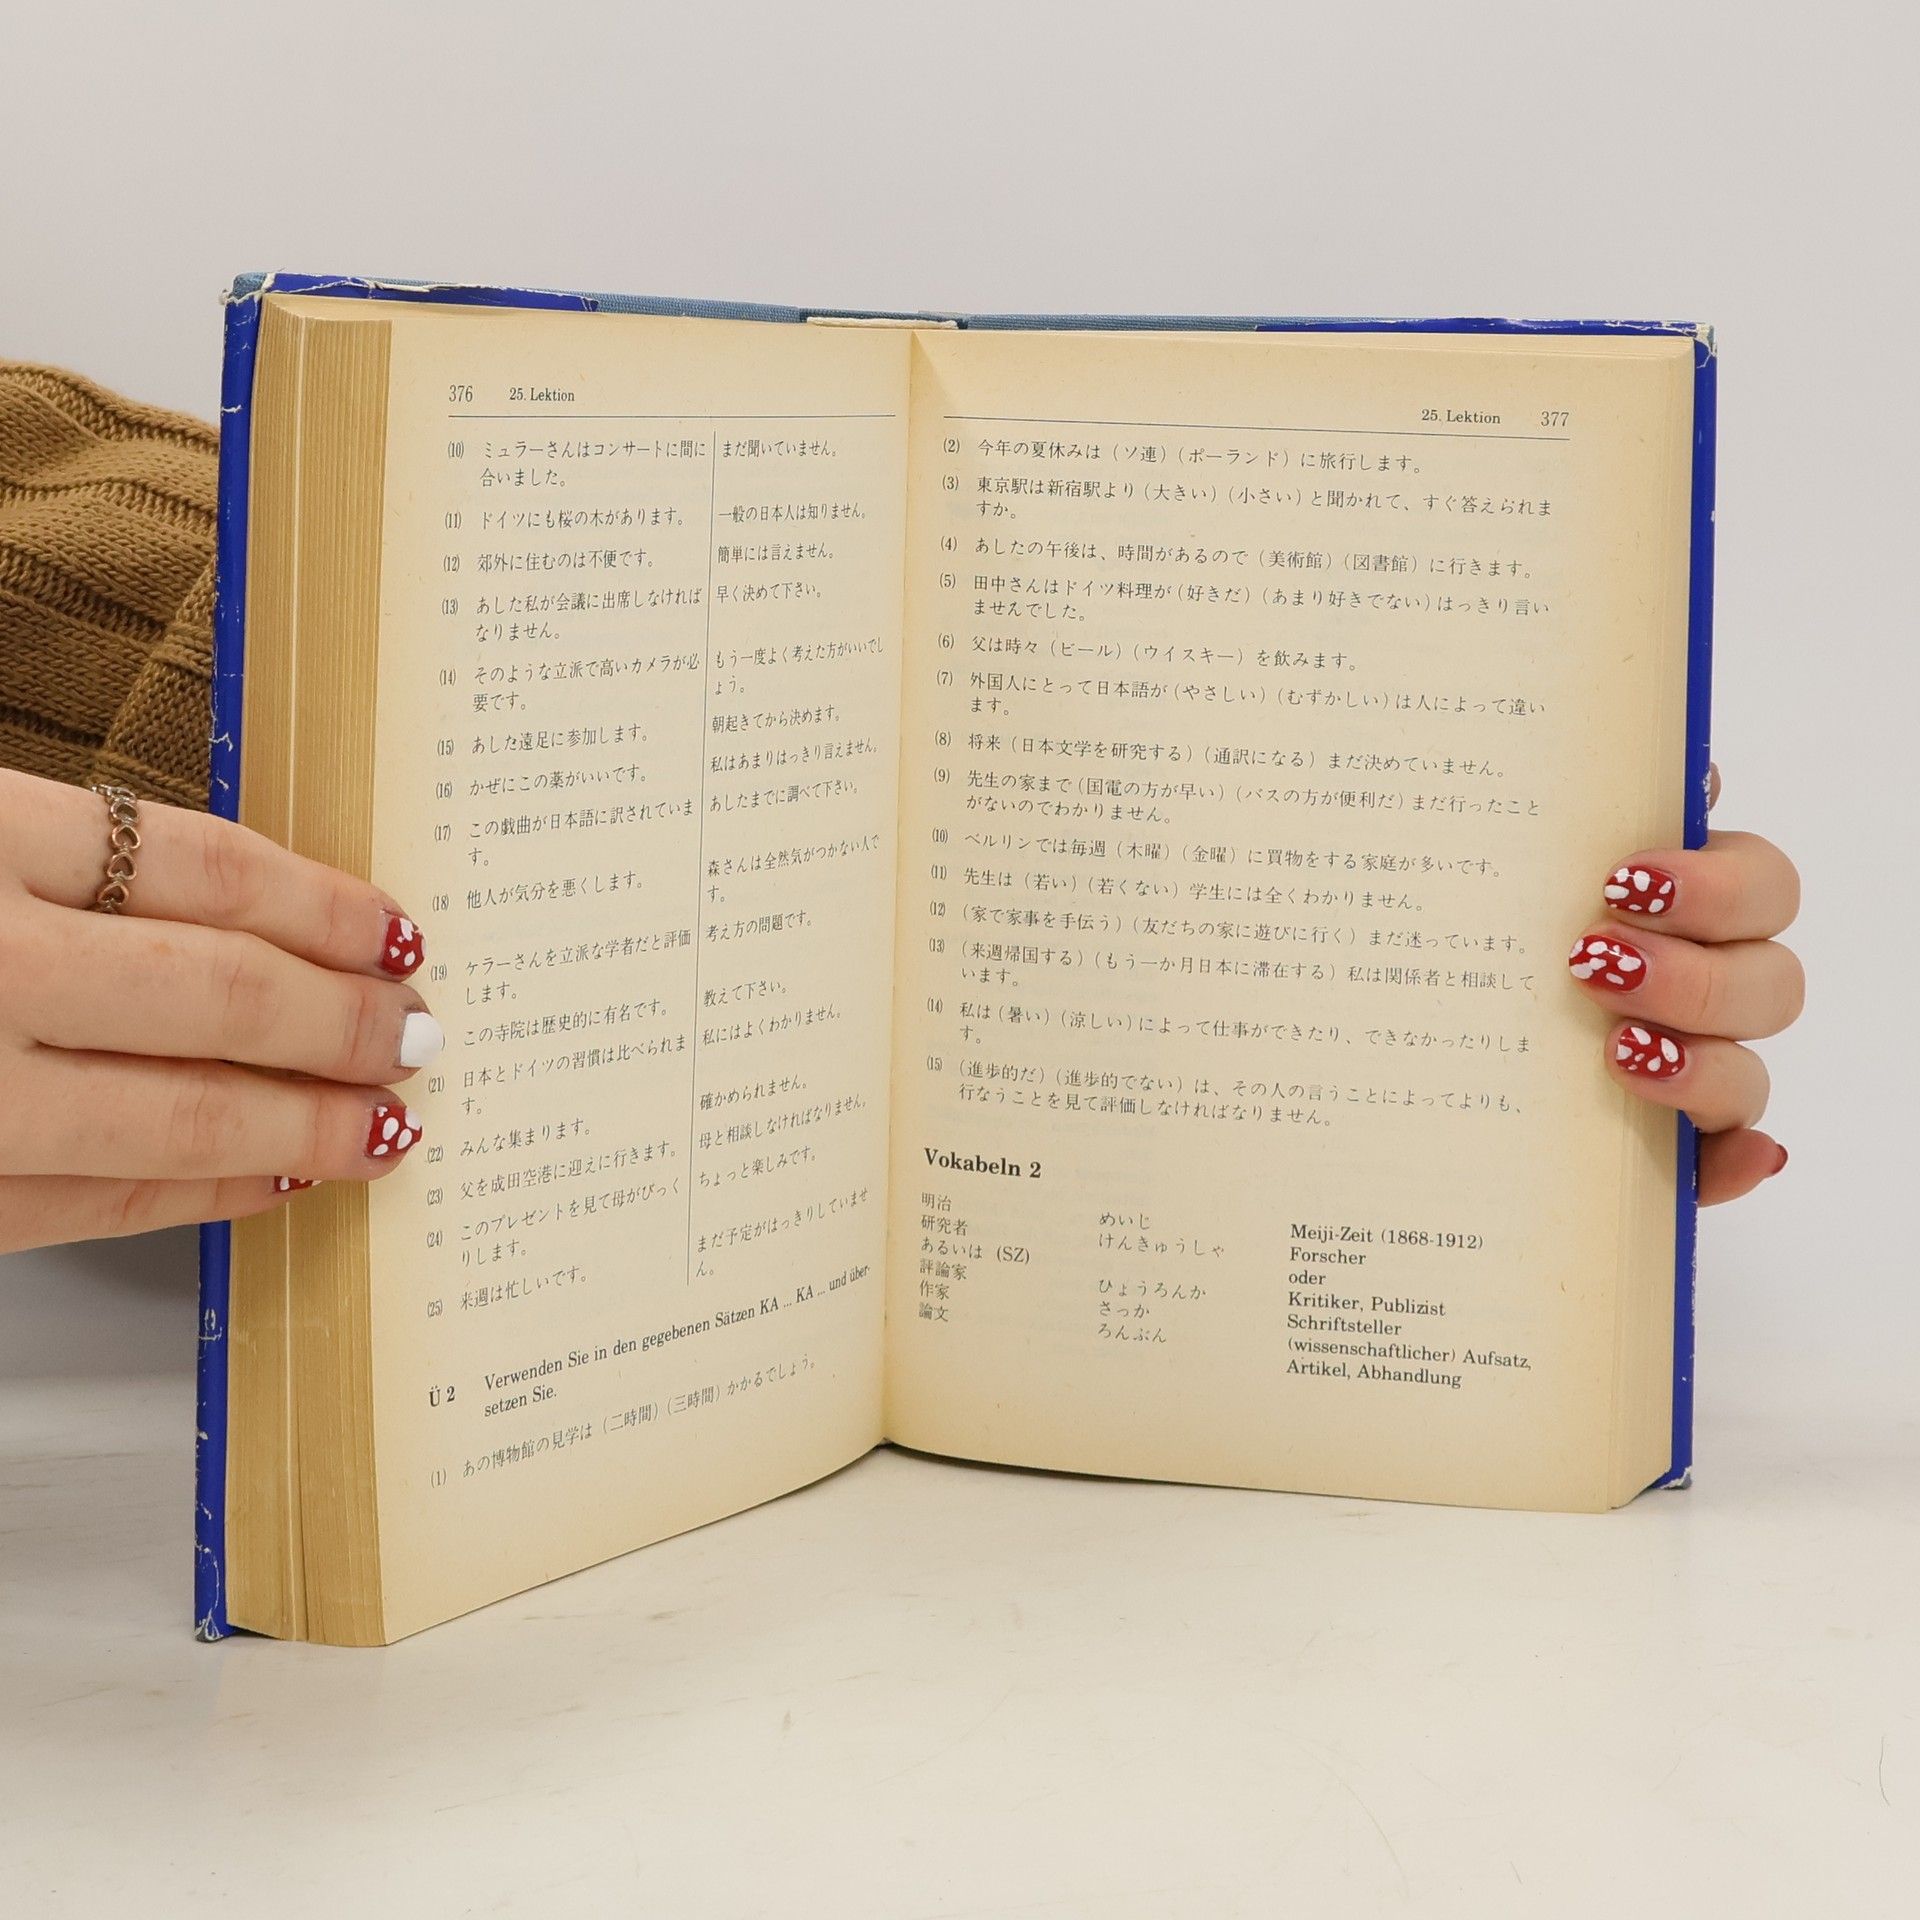 376 25. Lektion
(10) ミュラーさんはコンサートに間に
合いました。
まだ聞いていません。
(11) ドイツにも桜の木があります。
一般の日本人は知りません。
(12) 郊外に住むのは不便です。
簡単には言えません。
(13) あした私が会議に出席しなければ
なりません。
早く決めて下さい。
(14) そのような立派で高いカメラが必
要です。
もう一度よく考えた方がいいでし
ょう。
(15) あした遠足に参加します。
朝起きてから決めます。
(16) かぜにこの薬がいいです。
私はあまりはっきり言えません。
(17) この戯曲が日本語に訳されていま
す。
あしたまでに調べて下さい。
(18) 他人が気分を悪くします。
森さんは全然気がつかない人で
す。
(19) ケラーさんを立派な学者だと評価
します。
考え方の問題です。
) この寺院は歴史的に有名です。
教えて下さい。
(21) 日本とドイツの習慣は比べられま
す。
私にはよくわかりません。
(22) みんな集まります。
確かめられません。
(23) 父を成田空港に迎えに行きます。
母と相談しなければなりません。
(24) このプレゼントを見て母がびっく
りします。
ちょっと楽しみです。
(25) 来週は忙しいです。
まだ予定がはっきりしていませ
ん。
Ü 2 Verwenden Sie in den gegebenen Sätzen KA ... KA ... und über-
setzen Sie.
(1) あの博物館の見学は（二時間）（三時間）かかるでしょう。
25. Lektion 377
(2) 今年の夏休みは（ソ連）（ポーランド）に旅行します。
(3) 東京駅は新宿駅より（大きい）（小さい）と聞かれて、すぐ答えられま
すか。
(4) あしたの午後は、時間があるので（美術館）（図書館）に行きます。
(5) 田中さんはドイツ料理が（好きだ）（あまり好きでない）はっきり言い
ませんでした。
(6) 父は時々（ビール）（ウイスキー）を飲みます。
(7) 外国人にとって日本語が（やさしい）（むずかしい）は人によって違い
ます。
(8) 将来（日本文学を研究する）（通訳になる）まだ決めていません。
(9) 先生の家まで（国電の方が早い）（バスの方が便利だ）まだ行ったこと
がないのでわかりません。
(10) ベルリンでは毎週（木曜）（金曜）に買物をする家庭が多いです。
(11) 先生は（若い）（若くない）学生には全くわかりません。
(12) （家で家事を手伝う）（友だちの家に遊びに行く）まだ迷っています。
(13) （来週帰国する）（もう一か月日本に滞在する）私は関係者と相談して
います。
(14) 私は（暑い）（涼しい）によって仕事ができたり、できなかったりしま
す。
(15) （進歩的だ）（進歩的でない）は、その人の言うことによってよりも、
行なうことを見て評価しなければなりません。
Vokabeln 2
明治 めいじ Meiji-Zeit (1868-1912)
研究者 けんきゅうしゃ Forscher
あるいは (SZ) oder
評論家 ひょうろんか Kritiker, Publizist
作家 さっか Schriftsteller
論文 ろんぶん (wissenschaftlicher) Aufsatz,
Artikel, Abhandlung